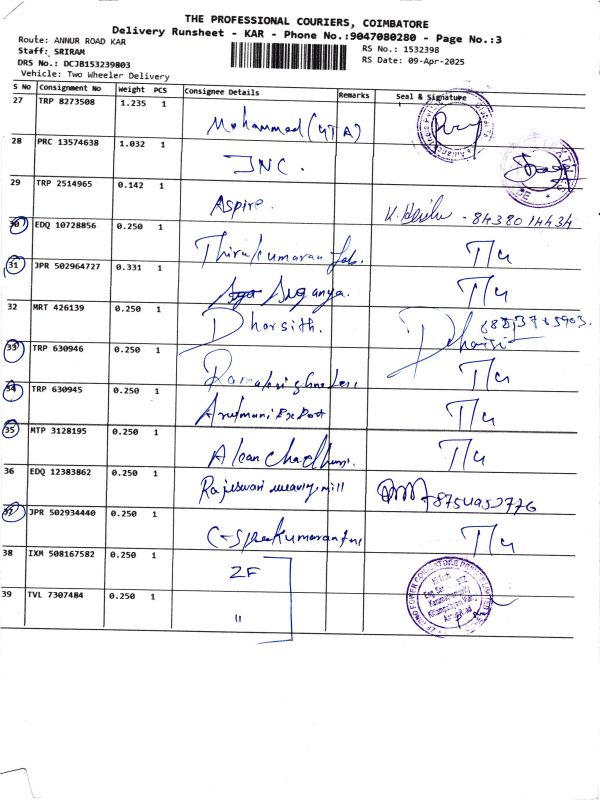 THE PROFESSIONAL COURIERS, COIMBATORE
Delivery Runsheet - KAR - Phone No.:9047080280 - Page No.:3
Route: ANNUR ROAD KAR
RS No.: 1532398
Staff: SRIRAM
RS Date: 09-Apr-2025
DRS No.: DCJB153239803
Vehicle: Two Wheeler Delivery
S No Consignment No Weight PCS Consignee Details Remarks Seal & Signature
27 TRP 8273508 1.235 1 Mohammed
28 PRC 13574638 1.032 1 JNC.
29 TRP 2514965 0.142 1 Aspire. - 8438014434
30 EDQ 10728856 0.250 1 Thirukumaran T/4
31 JPR 502964727 0.331 1 T/4
32 MRT 426139 0.250 1 Dharsith.
33 TRP 630946 0.250 1 T/4
34 TRP 630945 0.250 1 Arulmani Export T/4
35 MTP 3128195 0.250 1 T/4
36 EDQ 12383862 0.250 1 Rajeswari mill
37 JPR 502934440 0.250 1 T/4
38 IXM 508167582 0.250 1 ZF
39 TVL 7307484 0.250 1 "